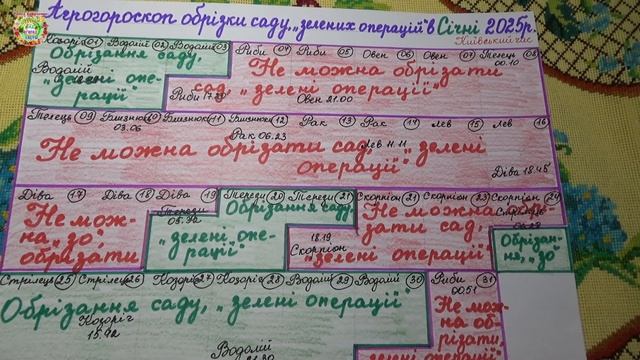 Агрогороскоп обрізки саду, „зелених операцій" в Січні 2025р
Київський час
Козоріг 01 Водолій 02 Водолій 03 Риби 04 Риби 05 Овен 06 Овен 07 08
00.10
Обрізання саду,
Водолій
„зелені опе-
рації"
Не можна обрізати
сад, „зелені операції"
Риби 17.
Овен 21.00
Телець 09 Близнюки 10 Близнюки 11 Близнюки 12 Рак 13 Рак 14 Лев 15 Лев 16
03.06
Рак 06.23
Лев 11.11
Не можна обрізати сад, „зелені
операції"
Діва 18.45
Діва 17 Діва 18 Діва 19 Терези 20 Терези 21 Скорпіон 21 Скорпіон 23 Скорпіон 24
Не мож-
на „зо"
обрізати
Терези
Обрізання саду,
„зелені опе-
рації"
18.19
Скорпіон
Не можна
зати сад,
„зелені операції"
Обрізан-
ня, „зо"
Стрілець 25 Стрілець 26 Козоріг 27 Козоріг 28 Водолій 29 Водолій 30 Риби 31
0051
Обрізання саду, „зелені операції"
Козоріг
15.
Водолій
Не мож-
на об-
різати,
„зелені